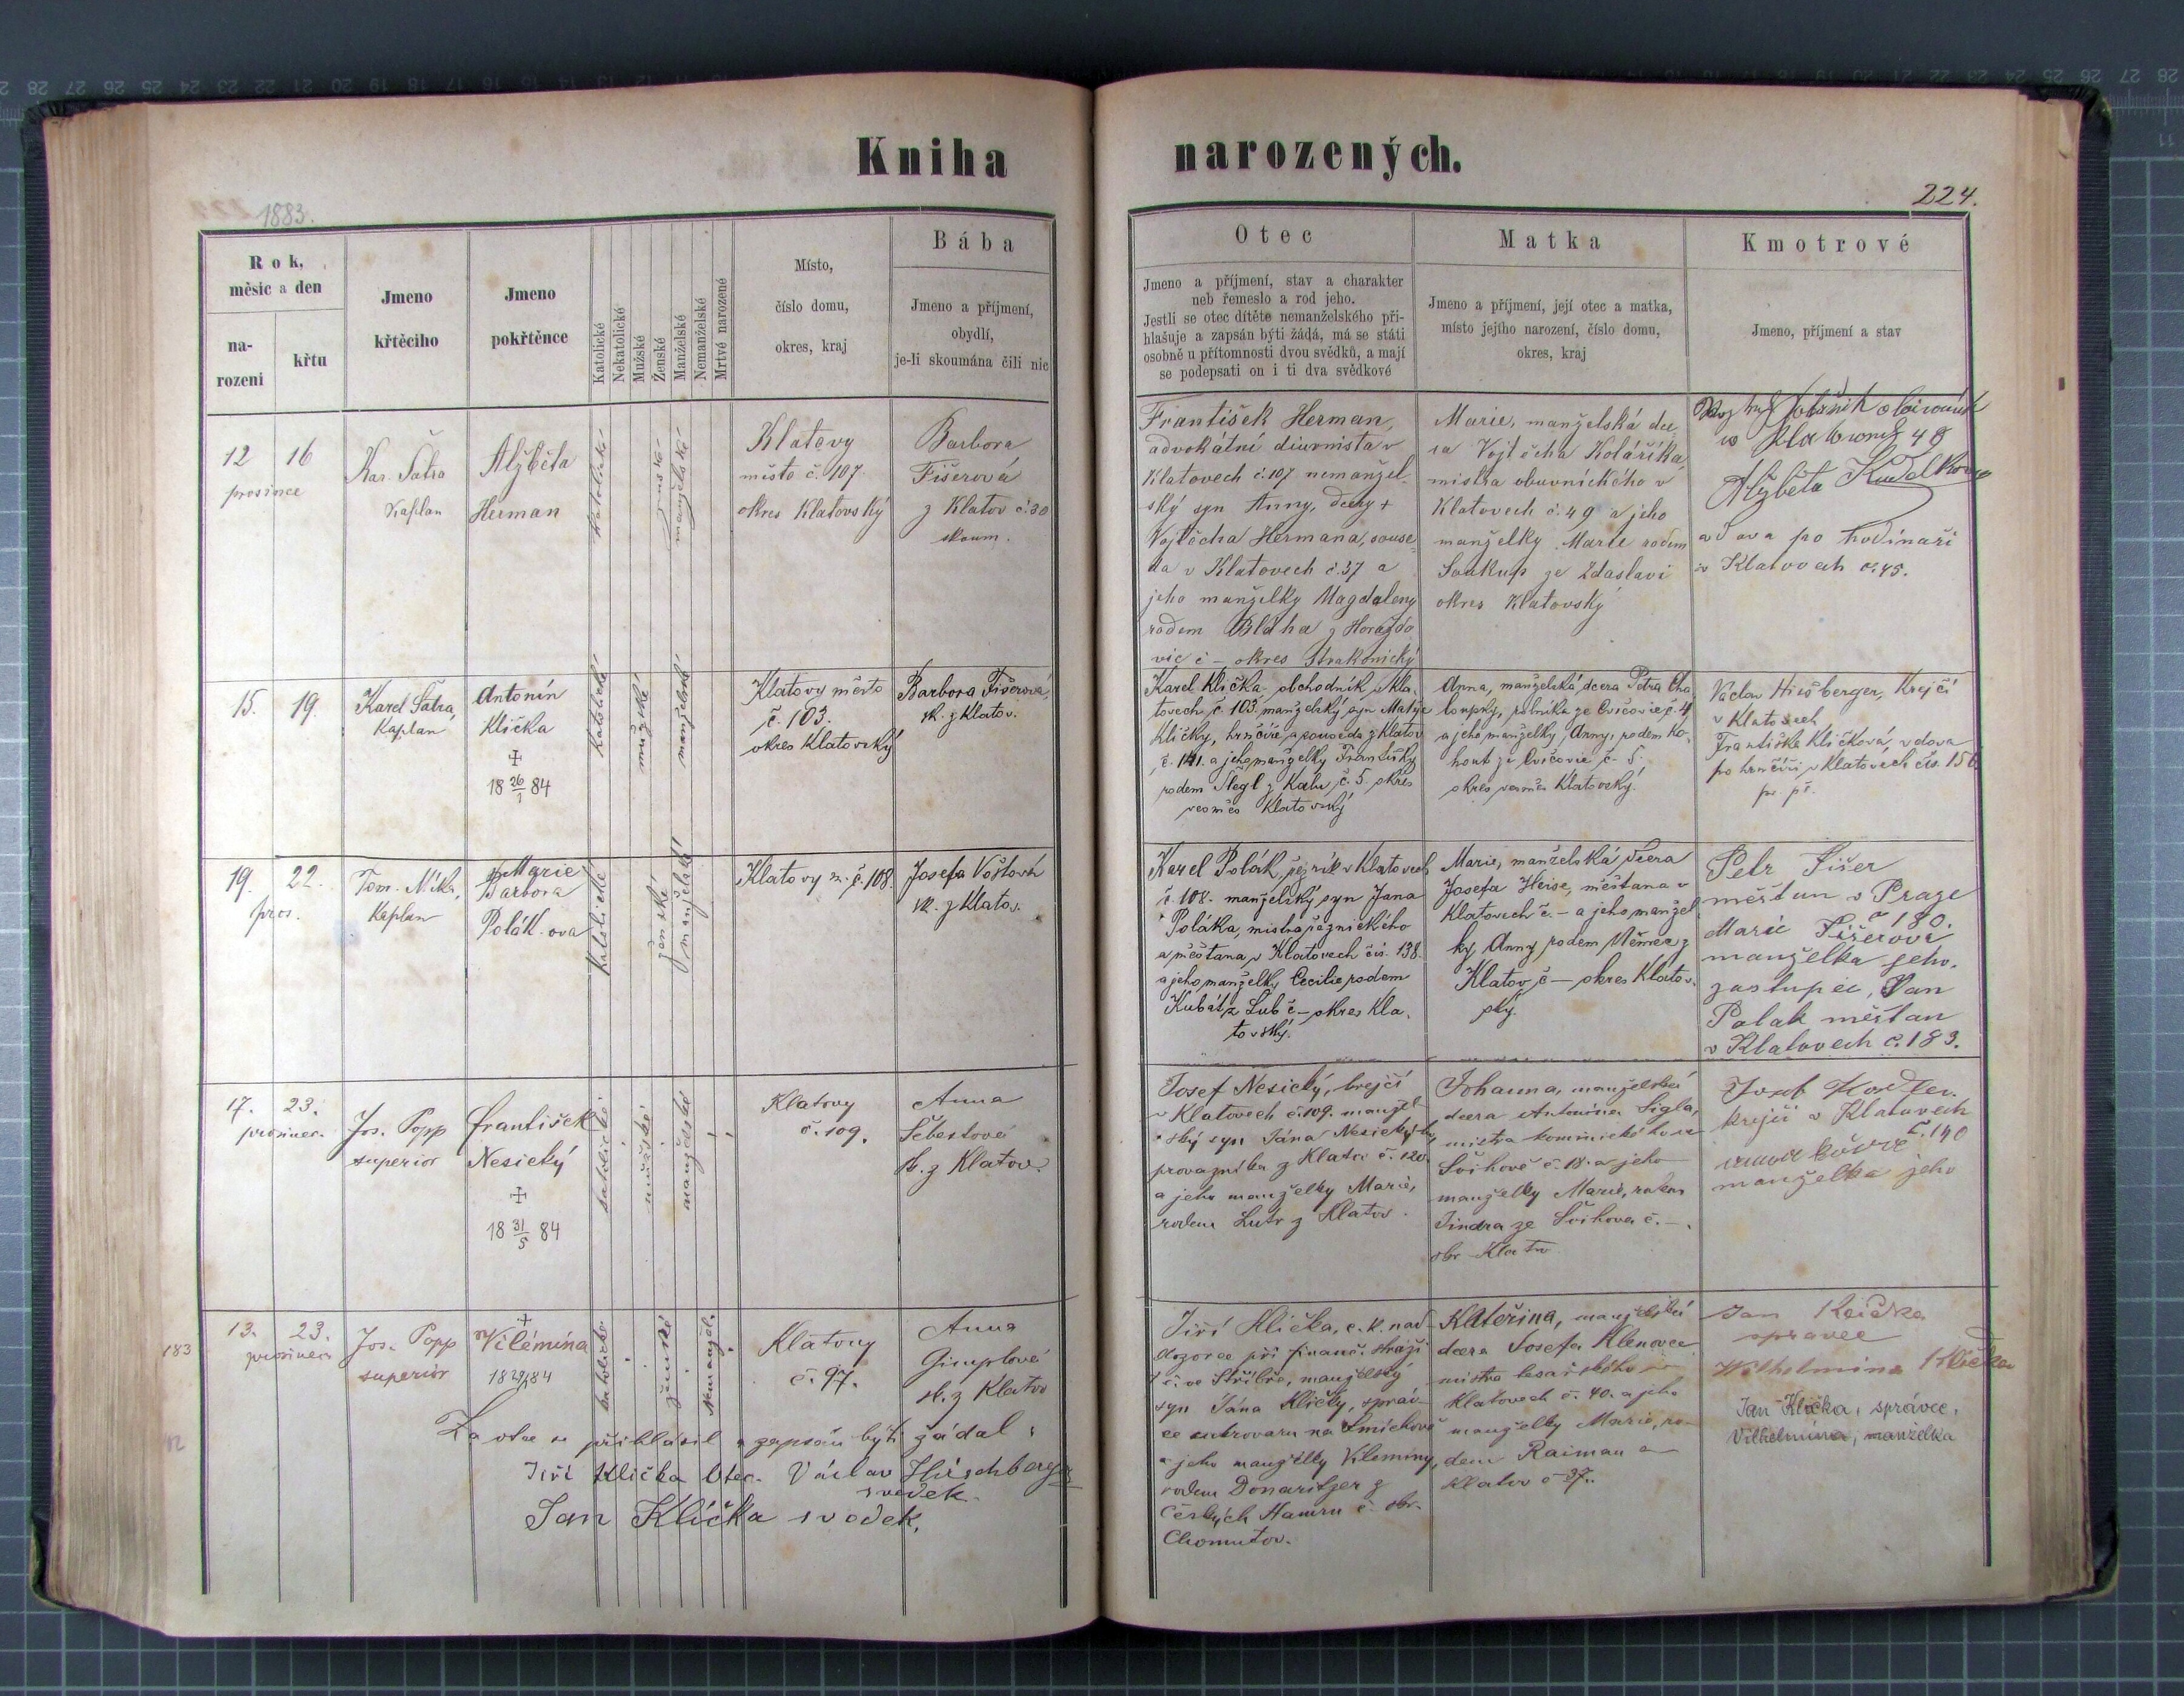 Kniha narozených.
1883.
224.
Rok, měsíc a den
narození
křtu
Jmeno křtěcího
Jmeno pokřtěnce
Katolické
Nekatolické
Mužské
Ženské
Manželské
Nemanželské
Mrtvě narozené
Místo,
číslo domu,
okres, kraj
Bába
Jmeno a příjmení,
obydlí,
je-li skoumána čili nic
Otec
Jmeno a příjmení, stav a charakter
neb řemeslo a rod jeho.
Jestli se otec dítěte nemanželského při-
hlašuje a zapsán býti žádá, má se státi
osobně u přítomnosti dvou svědků, a mají
se podepsati on i ti dva svědkové
Matka
Jmeno a příjmení, její otec a matka,
místo jejího narození, číslo domu,
okres, kraj
Kmotrové
Jmeno, příjmení a stav
12 16
prosince
Kar. Šatra
Kaplan
Alžběta
Herman
katolické
ženské
manželské
Klatovy
město č. 107.
okres Klatovský
Barbora
Fišerová
z Klatov č. 30
skoum.
František Herman,
advokátní diurnista v
Klatovech č. 107 nemanžel-
ský syn Anny, dcery +
Vojtěcha Hermana, souse-
da v Klatovech č. 37 a
jeho manželky Magdaleny
rodem Bláha z Horaždo
vic č – okres Strakonický
Marie, manželská dce
ra Vojtěcha Kolářika,
mistra obuvnického v
Klatovech č. 49 a jeho
manželky Marie rodem
Soukup ze Zdaslavi
okres Klatovský
48
Alžběta Kudelkova
vdova po hodinaři
v Klatovech č. 45.
15. 19.
Karel Šatra,
Kaplan
Antonín
Klička
+
18 26/1 84
katolické
mužské
manželské
Klatovy město
č. 103.
okres Klatovský
Barbora Fišerová,
sk. z Klatov.
Karel Klička obchodník v Kla-
tovech č. 103, manželský syn Matěje
Kličky, hrnčíře a souseda z Klatov
č. 141. a jeho manželky Františky
rodem Šlégl z Kalu, č. 5. okres
vesměs Klatovský
Anna, manželská dcera Petra Cha
loupky, půlníka ze Cvičovic č. 4
a jeho manželky Anny, rodem Ko-
hout ze Cvičovic č. 5.
okres vesměs Klatovský.
Václav Hiršberger, Krejčí
v Klatovech
Františka Kličková, vdova
po hrnčíři v Klatovech čís. 156
19. 22.
pros.
Tom. Nika,
Kaplan
Marie
Barbora
Polák-ova
Katolické
ženské
manželské
Klatovy m. č. 108.
Josefa Voštová
sk. z Klatov.
Karel Polák, řezník v Klatovech
č. 108. manželský syn Jana
Poláka, mistra řeznického
a měštana v Klatovech čís. 138.
a jeho manželky Cecilie rodem
Kubát z Lub č – okres Kla-
tovský.
Marie, manželská dcera
Josefa Heise, měštana v
Klatovech č. – a jeho manžel
ky Anny rodem Němec z
Klatov č – okres Klatov-
ský.
Petr Fišer
měštan v Praze
č 180.
Marie Fišerová
manželka jeho.
zastupce, Jan
Polak měštan
v Klatovech č. 183.
17. 23.
prosinec.
Jos. Popp
superior
František
Nesický
+
18 31/5 84
katolické
mužské
manželské
Klatovy
č. 109.
Anna
Šebestová
sk. z Klatov.
Josef Nesický, krejčí
v Klatovech č. 109. manžel-
ský syn Jána Nesického,
provazníka z Klatov č. 120.
a jeho manželky Marie,
rodem Lutr z Klatov.
Johanna, manželská
dcera Antonína Sigla,
mistra kominického ve
Švihově č. 18. a jeho
manželky Marie, rodem
Jindra ze Švihova č. –.
okr Klatov
Josef
krejčí v Klatovech
č. 140
manželka jeho
183
13. 23.
prosinec
Jos. Popp
superior
+
Vilémína
18 29/1 84
katolické
ženské
Nemanžel.
Klatovy
č. 97.
Anna
Gimplová
sk. z Klatov
Za otce se přihlásil a zapsán býti žádal:
Jiří Klička Otec. Václav Hirschberger
svedek.
Jan Klička svědek.
Jiří Klička, c. k. nad-
dozorce při finanč. stráži
č. ve Stříbře, manželský
syn Jána Kličky, správ-
ce cukrovaru na Smíchově
a jeho manželky Vilemíny,
rodem Donaritzer z
Českých Hamrů č. okr.
Chomutov.
Kateřina, manželská
dcera Josefa Klenovce
mistra tesařského v
Klatovech č. 40. a jeho
manželky Marie, ro-
dem Raiman z
Klatov č 37.
Jan Klička
spravce
Wilhelmina Klička
Jan Klička, správce,
Vilhelmina, manželka